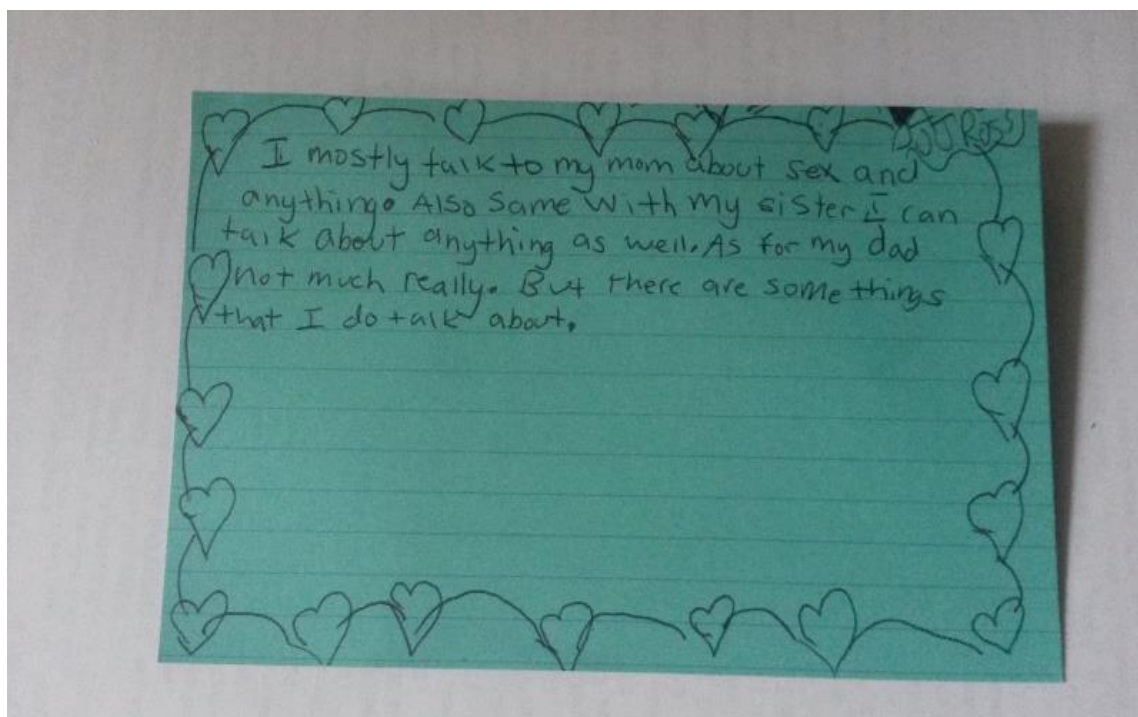 I mostly talk to my mom about sex and
anything. Also same with my sister I can
talk about anything as well. As for my dad
not much really. But there are some things
that I do talk about.